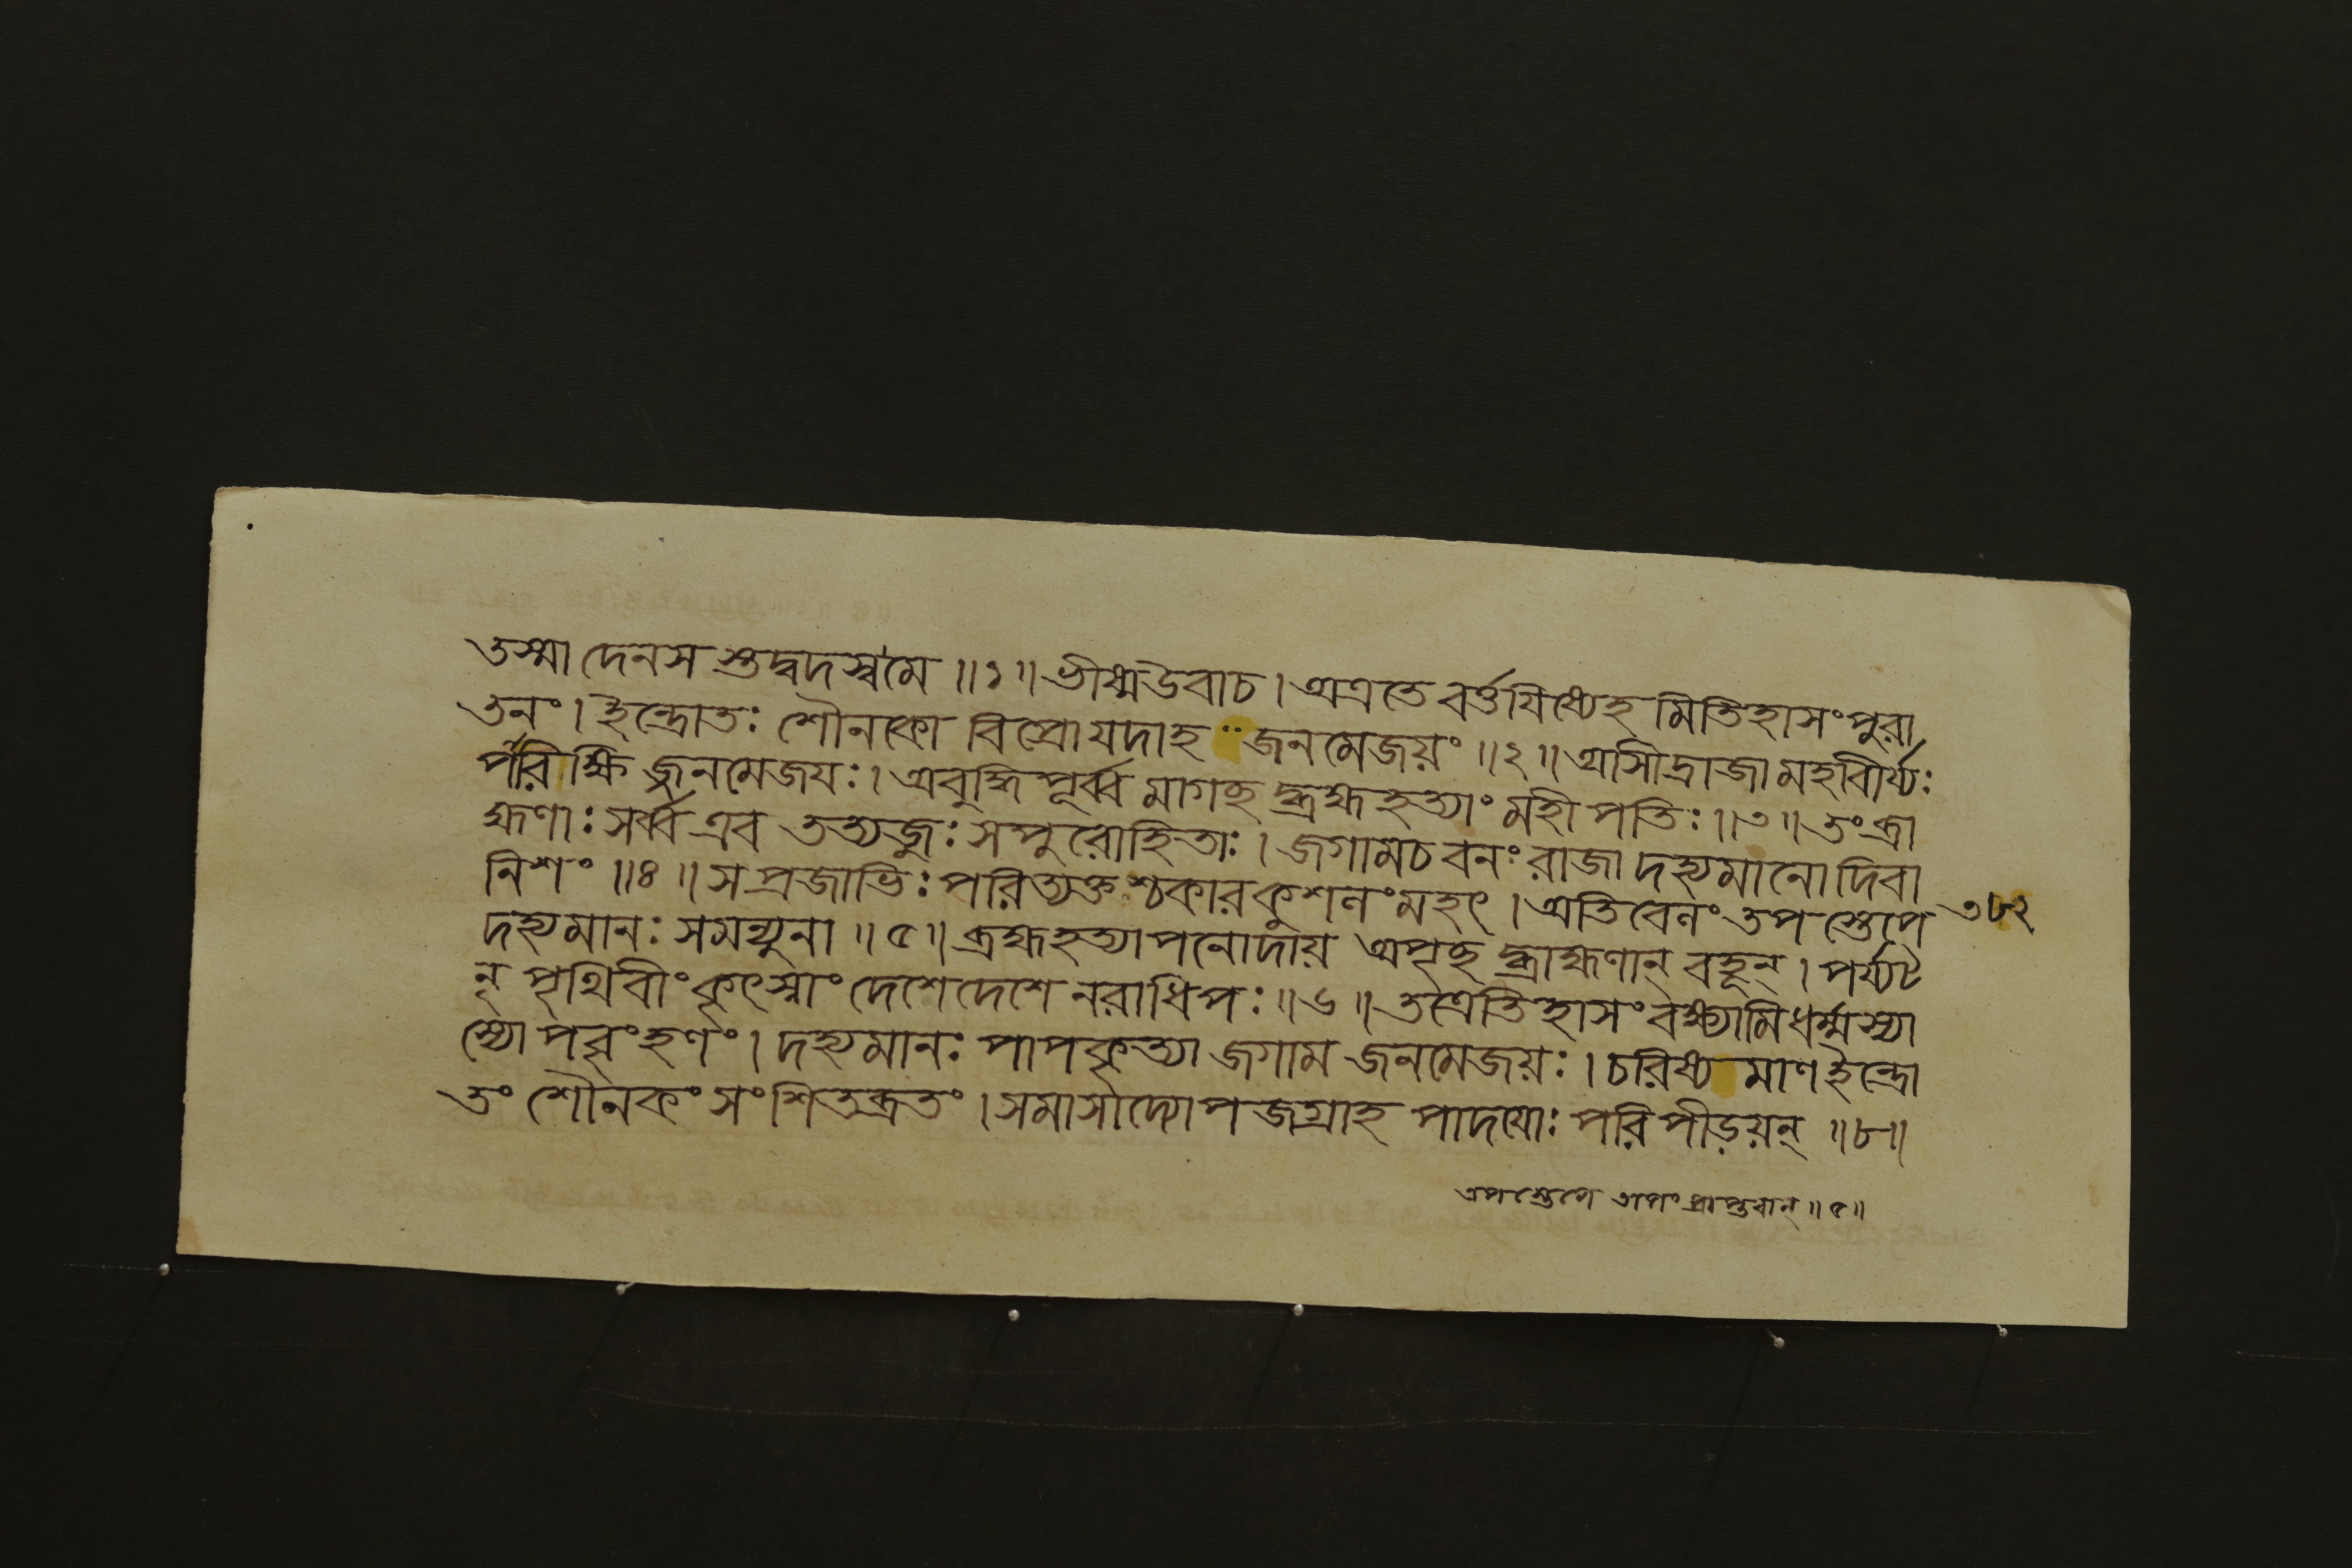 তস্মাদেনস শুদ্বদস্বমে ॥১॥ ভীষ্মউবাচ। অত্রতে বর্ত্তযিষ্যেহ মিতিহাসংপুরা
তনং। ইন্দ্রোতঃ শৌনকো বিপ্রোযদাহ জনমেজয়ং ॥২॥ আসীদ্রাজামহবীর্য্যঃ
পরিক্ষি জ্জনমেজযঃ। অবুদ্ধিপূর্ব্ব মাগচ্ছ দ্ব্রহ্মহত্যাং মহীপতিঃ॥৩॥ তংব্রা
হ্মণাঃ সর্ব্ব এব তত্যজুঃ সপুরোহিতাঃ। জগামচ বনং রাজা দহ্যমানো দিবা
নিশং ॥৪॥ স প্রজাভিঃ পরিত্যক্ত শ্চকার কুশলংমহৎ। অতিবেলং তপ স্তেপে ৩৮২
দহ্যমানঃ সমন্যুনা ॥৫॥ ব্রহ্মহত্যাপনোদায় অপৃচ্ছ দ্ব্রাহ্মণান্ বহূন্। পর্য্যট
ন্ পৃথিবীং কৃৎস্নাং দেশেদেশে নরাধিপঃ ॥৬॥ তত্রেতিহাসং বক্ষ্যামি ধর্ম্মস্যা
স্যোপবৃংহণং। দহ্যমানঃ পাপকৃত্যা জগাম জনমেজয়ঃ। চরিষ্যমাণ ইন্দ্রো
তং শৌনকং সংশিতব্রতং। সমাসাদ্যোপজগ্রাহ পাদযোঃ পরিপীড়য়ন্ ॥৮॥
তপস্তেপে তাপং প্রাপ্তবান্ ॥৫॥